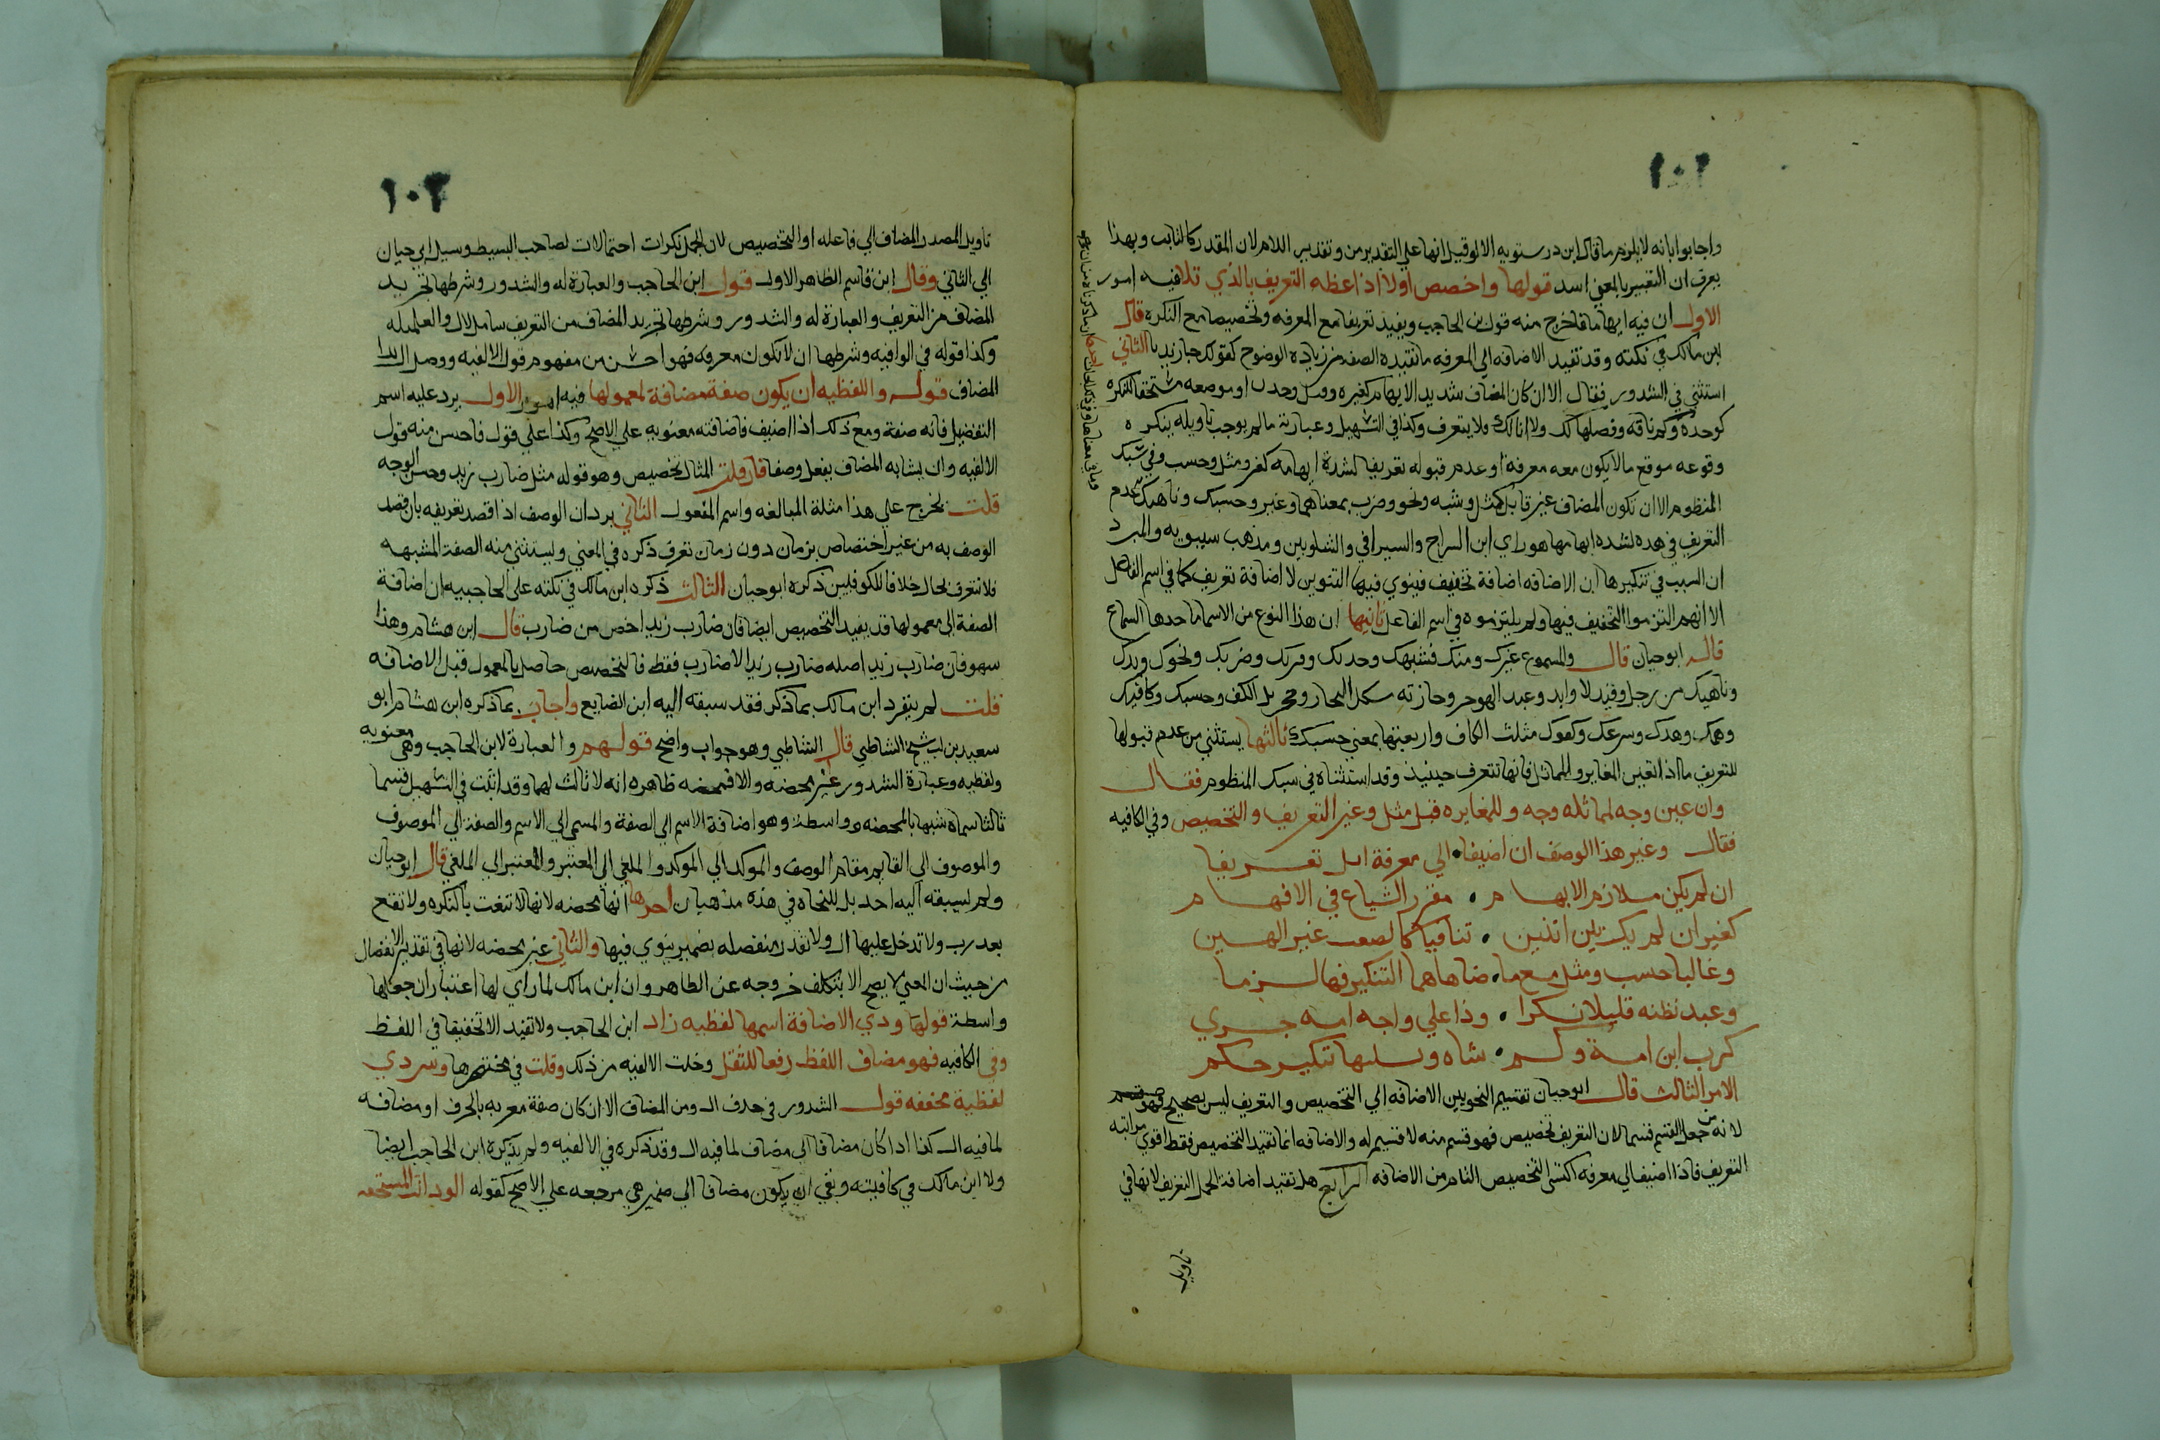 ١٠٢
واجابوا بانه لا يلزم ما قال ابن درستويه الا لو قيل انها علي التقدير من وتقدير اللام لان المقدر كالثابت وبهذا
يعرف ان التعبير بالمعني اسد قولها واخصص اولا او اعطه التعريف بالذي تلا فيه امور
الاول ان فيه ايهاما فاخرج منه قول ابن الحاجب ويفيد تعريفا مع المعرفه وتخصيصا مع النكره قال
ابن مالك في نكته وقد تفيد الاضافه الي المعرفه ما تفيده الصفه من زياده الوضوح كقولك جا زيد الثاني
استثني في الشدور فقال الا ان كان المضاف شديد الابهام كغيره ومثل وحدن او موصعه مستحقا للنكره
كوحده وكم ناقه وفصلها لك ولا ابا لك ولا يتعرف وكذا في التسهيل وعبارته ما لم يوجب تاويله بنكره
وقوعه موقع ما لا يكون معه معرفة او عدم قبوله تعريفا لشدة ابهامه كغير ومثل وحسب وفي سبك
المنظوم الا ان تكون المضاف غير قابل كمثل وشبه ونحو وضرب بمعناهما وغير وحسبك وناهيك عدم
التعريف في هده لشده ابهامها هو راي ابن السراج والسيرافي والشلوبين ومذهب سيبويه والمبرد
ان السبب في تنكيرها ان الاضافه اضافة تخفيف فينوي فيها التنوين لا اضافة تعريف كما في اسم الفاعل
الا انهم التزموا التخفيف فيها ولم يلتزموه في اسم الفاعل ثانيها ان هذا النوع من الاسما ماحدها السماع
قاله ابو حيان قال والمسموع غيرك ومثلك وشبهك وخدنك وتربك وضربك ونحوك وندك
وناهيك من رجل وقيد الاوابد وعبد الهواجر
وهمك وهدك وسرعك وكفوك مثلث الكاف واربعتها بمعني حسبك ثالثها يستثني من عدم قبولها
للتعريف ما اذا تعين المغاير والمماثل فانها تتعرف حينيذ وقد استثناه في سبك المنظوم فقال
وان عين وجه المماثله وجه والمغايره قبل مثل وغير التعريف والتخصيص وفي الكافيه
فقال وغير هذا الوصف ان اضيفا الي معرفة انل تعريفا
ان لم يكن ملازم الابهام مقرر الشياع في الافهام
كغير ان لم يك بين اثنين تنافيا كالصعب غير الهين
وغالبا حسب ومثل مع ما ضاهاهما التنكير فيها الزما
وعبد بطنه قليلا نكرا وذا علي واحد امه جري
كرب ابن امة وكم شاه وسلبها تنكير حكم
الامر الثالث قال ابو حيان تقسيم النحويين الاضافه الي التخصيص والتعريف ليس بصحيح
لانه من جعل القسم قسيما لان التعريف تخصيص فهو قسم منه لا قسيم له والاضافه انما تفيد التخصيص فقط اقوي مراتبه
التعريف فاذا اضيف الي معرفه اكتسي التخصيص التام من الاضافه الرابع هل تفيد اضافة الجمل التعريف لانها في
تاويل
١٠٣
تاويل المصدر المضاف الي فاعله او التخصيص لان الجمل نكرات احتمالات لصاحب البسيط وسيل ابن حيان
الي الثاني وقال ابن قاسم الظاهر الاول قول ابن الحاجب والعبارة له والشدور وشرطها تجريد
المضاف من التعريف والعبارة له والشدور وشرطها تجريد المضاف من التعريف شامل لال والعلميه
وكذا قوله في الوافيه وشرطها ان لا تكون معرفه فهو احسن من مفهوم قول الالفيه ووصل ال بذا
المضاف قوله واللفظيه ان يكون صفة مضافة لمعمولها فيه امور الاول يرد عليه اسم
التفضيل فانه صفة ومع ذلك اذا اضيف فاضافته معنويه علي الاصح وكذا علي قول فاحسن منه قول
الالفيه وان يشابه المضاف يفعل وصفا فان قلت المثال تخصيص وهو قوله مثل ضارب زيد وحسن الوجه
قلت يخرج علي هذا مثلة المبالغه واسم المفعول الثاني يرد ان الوصف اذا قصد تعريفه بان قصد
الوصف به من غير اختصاص بزمان دون زمان تعرف ذكره في المغني ويستثني منه الصفة المشبهه
فلا تتعرف بحال خلافا للكوفيين ذكره ابو حيان الثالث ذكره ابن مالك في نكته علي الحاجبيه ان اضافة
الصفة الي معمولها قد يفيد التخصيص ايضا فان ضارب زيد اخص من ضارب قال ابن هشام وهذا
سهو فان ضارب زيد اصله ضارب زيدا لا ضارب فقط فالتخصيص حاصل بالمعمول قبل الاضافه
قلت لم ينفرد ابن مالك بما ذكر فقد سبقه اليه ابن الضايع واجاب بما ذكره ابن هشام ابو
سعيد بن لب شيخ الشاطبي قال الشاطبي وهو جواب واضح قولهم والعبارة لابن الحاجب وهي معنويه
ولفظيه وعبارة الشدور غير محضه والا فمحضه ظاهره انه لا ثالث لهما وقد اثبت في التسهيل قسما
ثالثا سماه شبها بالمحضه وواسطة وهو اضافة الاسم الي الصفة والمسمي الي الاسم والصفة الي الموصوف
والموصوف الي القايم مقام الوصف والموكد الي الموكد والملغي الي المعتبر والمعتبر الي الملغي قال ابو حيان
ولم يسبقه اليه احد بل للنحاه في هذه مذهبان احدها انها محضه لانها لا تنعت بالنكره ولا تقع
بعد رب ولا تدخل عليها ال ولا تقدر منفصله بضمير ينوي فيها والثاني غير محضه لانها في تقدير الانفصال
من حيث ان المعني لا يصح الا بتكلف خروجه عن الظاهر وان ابن مالك لما راي لها اعتباران جعلها
واسطة قولها وذي الاضافة اسمها لفظيه زاد ابن الحاجب ولا تفيد الا تخفيفا في اللفظ
وفي الكافيه فهو مضاف اللفظ رفعا للثقل وخلت الالفيه من ذلك وقلت في مختصرها وتردي
لفظية مخففه قول الشدور في حدف ال من المضاف الا ان كان صفة معربه بالحرف او مضافه
لما فيه ال كذا اذا كان مضافا الي مضاف لما فيه ال وقد ذكره في الالفيه ولم يذكره ابن الحاجب ايضا
ولا ابن مالك في كافيته وبقي ان يكون مضافا الي ضمير هي مرجعه علي الاصح كقوله الود انت المستحقه